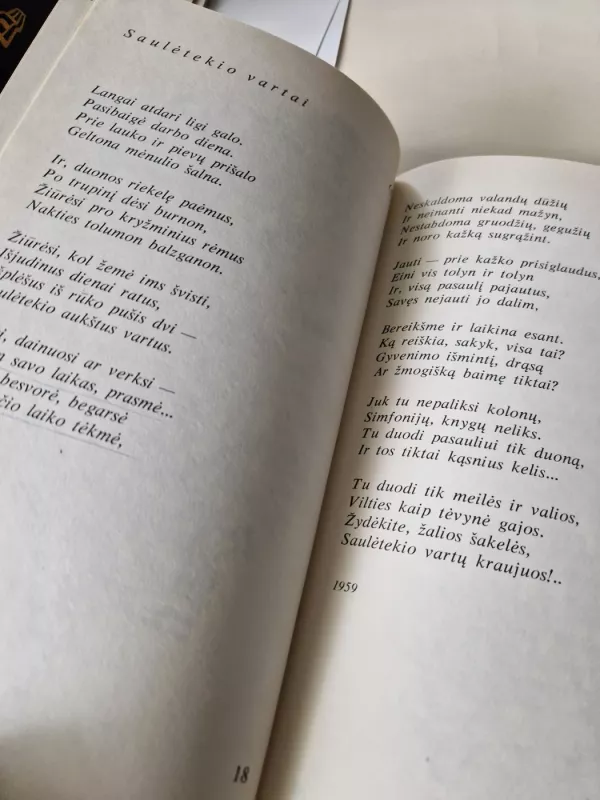 Saulėtekio vartai
Langai atdari ligi galo.
Pasibaigė darbo diena.
Prie lauko ir pievų prišalo
Geltona mėnulio šalna.
Ir, duonos riekelę paėmus,
Po trupinį dėsi burnon,
Žiūrėsi pro kryžminius rėmus
Nakties tolumon balzganon.
Žiūrėsi, kol žemė ims švisti,
Išjudinus dienai ratus,
iš rūko pušis dvi —
aukštus vartus.
dainuosi ar verksi —
savo laikas, prasmė...
besvorė, begarsė
laiko tėkmė,
18
Neskaldoma valandų dūžių
Ir neinanti niekad mažyn,
Nestabdoma gruodžių, gegužių
Ir noro kažką sugrąžint.
Jauti — prie kažko prisiglaudus,
Eini vis tolyn ir tolyn
Ir, visą pasaulį pajautus,
Savęs nejauti jo dalim,
Bereikšme ir laikina esant.
Ką reiškia, sakyk, visa tai?
Gyvenimo išmintį, drąsą
Ar žmogišką baimę tiktai?
Juk tu nepaliksi kolonų,
Simfonijų, knygų neliks.
Tu duodi pasauliui tik duoną,
Ir tos tiktai kąsnius kelis...
Tu duodi tik meilės ir valios,
Vilties kaip tėvynė gajos.
Žydėkite, žalios šakelės,
Saulėtekio vartų kraujuos!..
1959